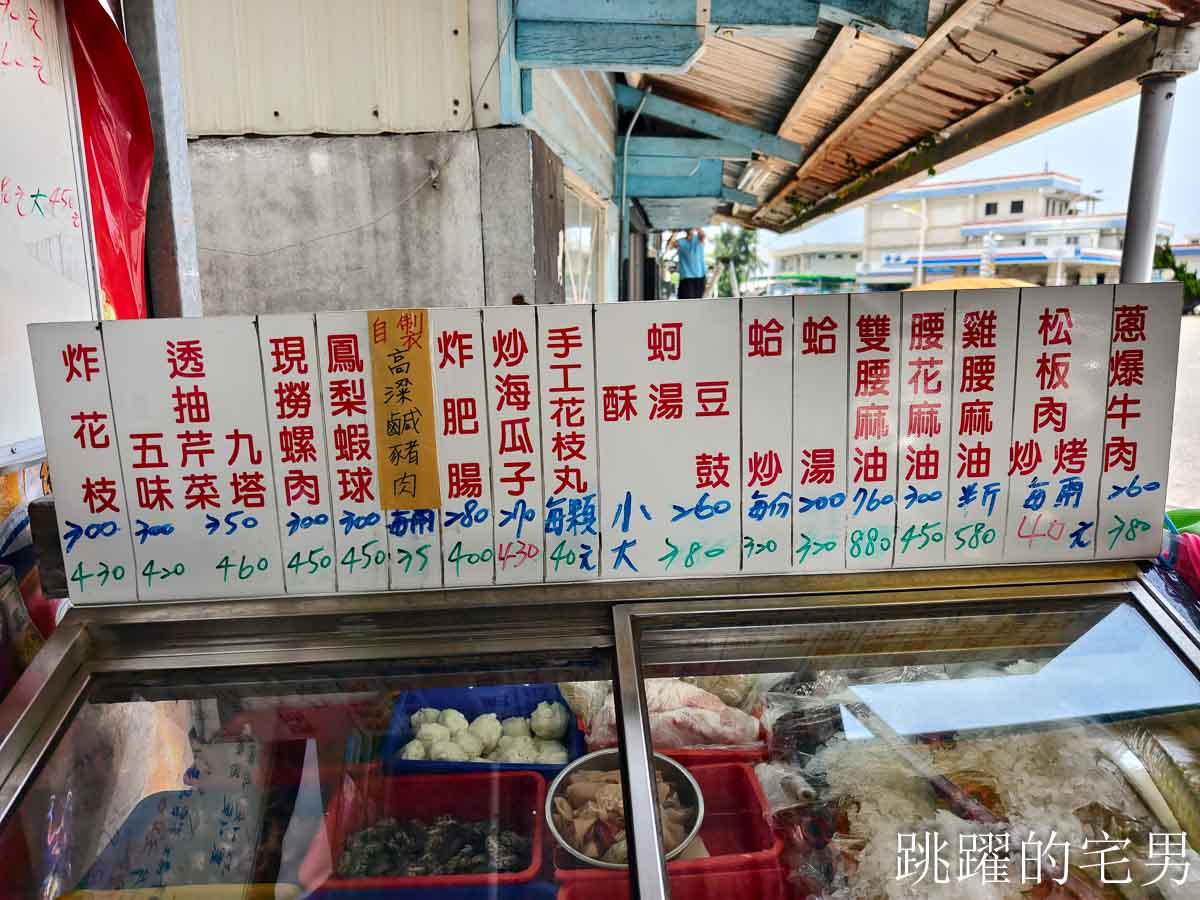 大450元
炸花枝
300
430
透抽
五味 芹菜 九塔
300 350
420 460
現撈螺肉
300
450
鳳梨蝦球
300
450
自製
高粱鹹豬肉
每兩
35
炸肥腸
280
400
炒海瓜子
270
430
手工花枝丸
每顆
40元
蚵
酥 湯 豆鼓
小 260
大 380
蛤炒
每份
320
蛤湯
200
320
雙腰麻油
760
880
腰花麻油
300
450
雞腰麻油
半斤
580
松板肉
炒 烤
每兩
40元
蔥爆牛肉
260
380
跳躍的宅男